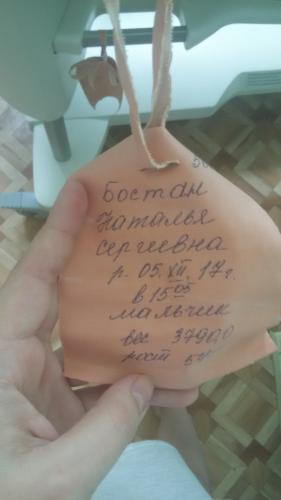 Бостан
Наталья
Сергиевна
р. 05. VII. 17 г.
в 15 05
мальчик
вес 3790,0
рост